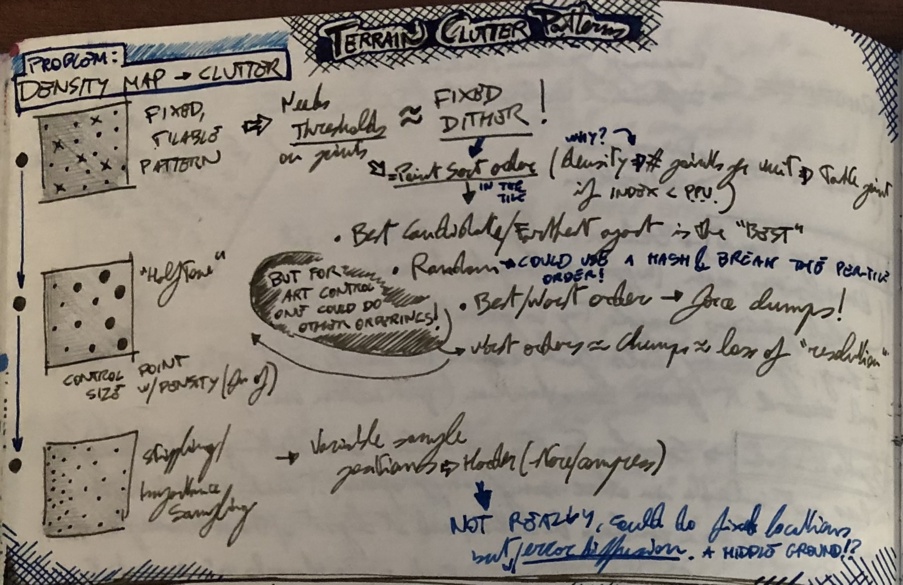 TERRAIN CLUTTER Patterns
PROBLEM:
DENSITY MAP → CLUTTER
FIXED,
TILABLE
PATTERN
⇒ Needs
Thresholds
on points
≈ FIXED
DITHER!
= Point Sort order
IN THE
TILE
WHY?
(density ⇒ # points per unit ⇒ Take point
if INDEX < PPU.)
• Best Candidate/Farthest again is the "BEST"
• Random → COULD USE A HASH & BREAK THE PER-TILE
ORDER!
• Best/Worst order → force clumps!
→ worst orders ≈ Clumps ≈ loss of "resolution"
BUT FOR
ART CONTROL
ONE COULD DO
OTHER ORDERINGS!
"Halftone"
CONTROL POINT
SIZE W/DENSITY
Stippling/
Importance
Sampling
→ Variable sample
positions ⇒ Harder
NOT REALLY, could do fixed locations
but error diffusion. A MIDDLE GROUND!?